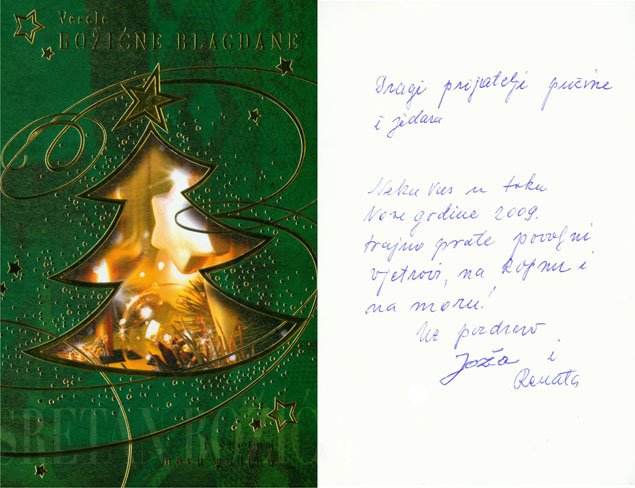 Vesele
BOŽIČNE BLAGDANE
SRETAN BOŽIĆ
novu godinu
Dragi prijatelji pučine
i jedara
Neka Vas u toku
Nove godine 2009.
trajno prate povoljni
vjetrovi, na kopnu i
na moru!
Uz pozdrav
Joža i
Renata